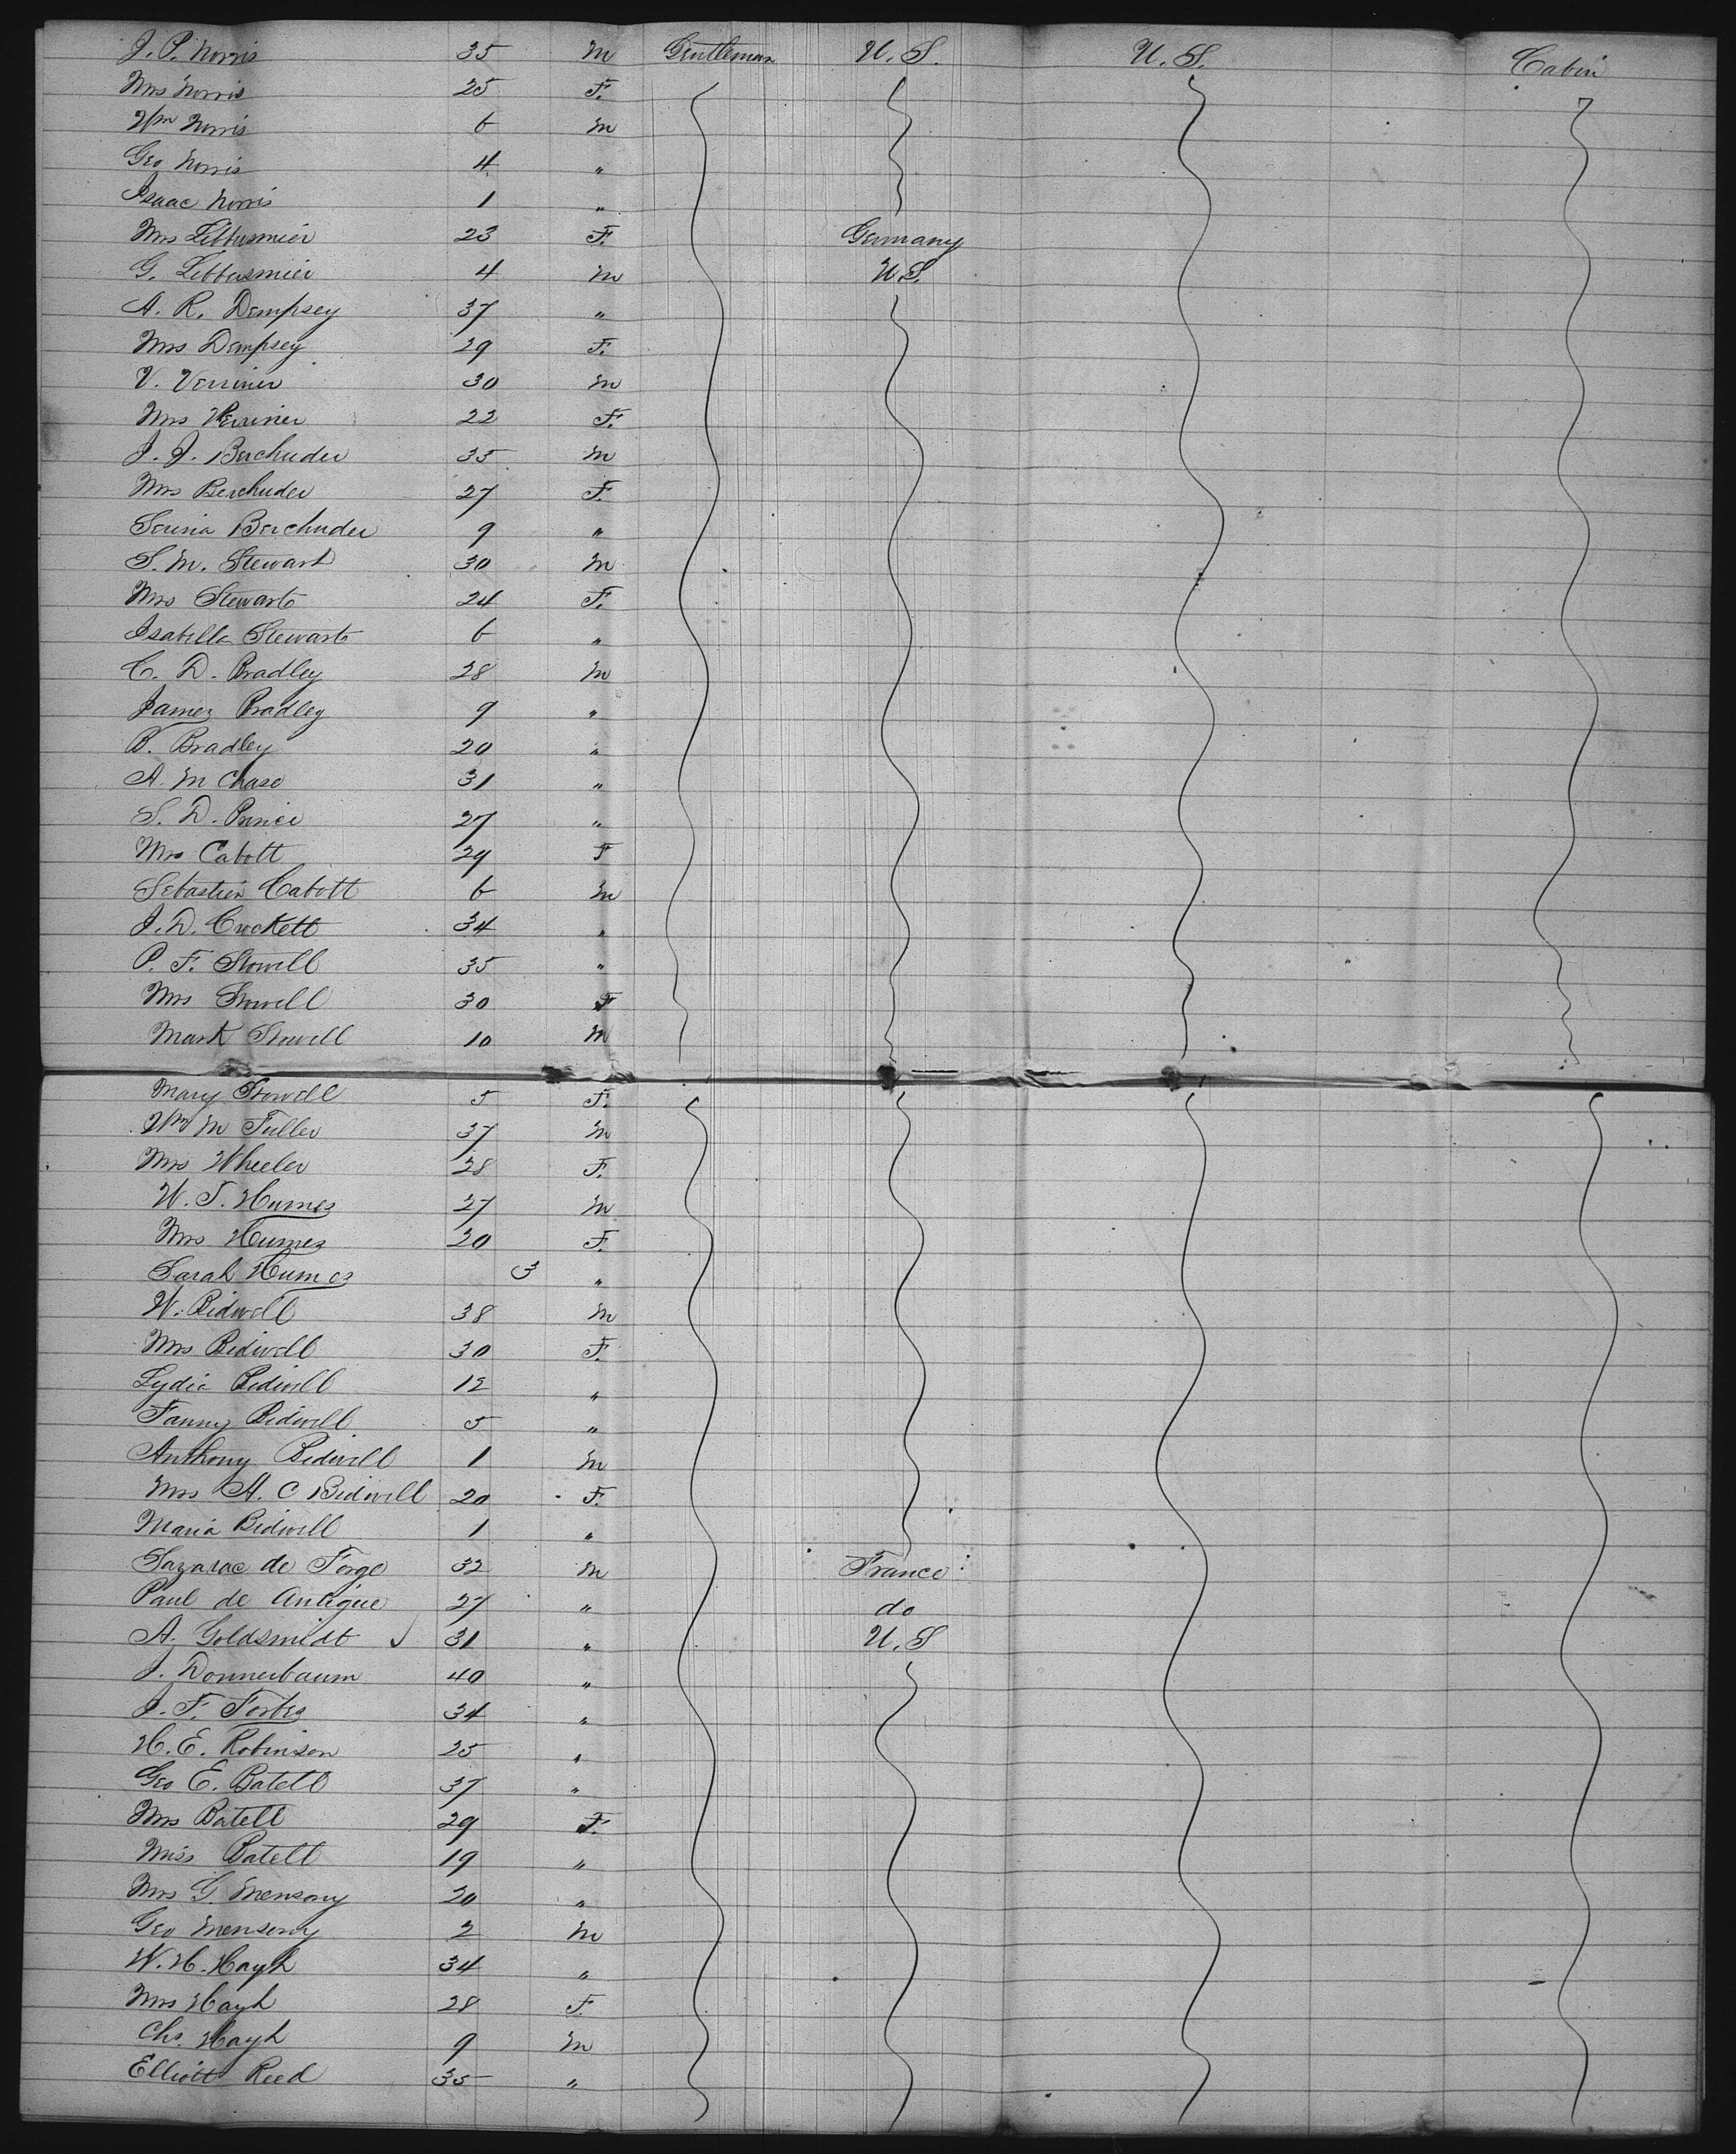 J. P. Norris 35 M Gentleman U. S. U. S. Cabin
Mrs Norris 25 F.
Wm Norris 6 M
Geo Norris 4 "
Isaac Norris 1 "
Mrs 23 F. Germany
G. 4 M U.S.
A. R. Dempsey 37 "
Mrs Dempsey 29 F.
V. Verrinier 30 M
Mrs 22 F.
J. J. Berchuder 35 M
Mrs Berchuder 27 F.
Berchuder 9 "
S. M. Stewart 30 M
Mrs Stewart 24 F.
Isabella Stewart 6 "
C. D. Bradley 28 M
James Bradley 9 "
B. Bradley 20 "
A. M Chase 31 "
S. D. Prince 27 "
Mrs Cabott 29 F
Sebastien Cabott 6 M
J. D. Crockett 34 "
P. F. Stowell 35 "
Mrs Stowell 30 F
Mark Stowell 10 M
Mary Stowell 5 F.
Wm M Fuller 37 M
Mrs Wheeler 28 F.
W. T. Humes 27 M
Mrs Humes 20 F.
Sarah Humes 3 "
W. Bidwell 38 M
Mrs Bidwell 30 F.
Lydia Bidwell 12 "
Fanny Bidwell 5 "
Anthony Bidwell 1 M
Mrs H. C Bidwell 20 F.
Maria Bidwell 1 "
de Forge 32 M France
Paul de Antique 27 " do
A. Goldsmidt ✓ 31 " U. S
J. Donnerbaum 40 "
J. F. Forbes 34 "
H. E. Robinson 25 "
Geo E. Batell 37 "
Mrs Batell 29 F.
Miss Batell 19 "
Mrs G. Mensony 20 "
Geo Mensony 2 M
W. H. Hayh 34 "
Mrs Hayh 28 F.
Chs. Hayh 9 M
Elliott Reed 35 "